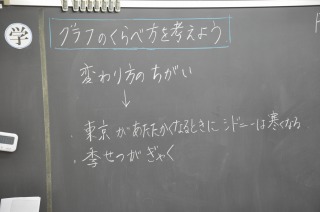 学
グラフのくらべ方を考えよう
変わり方のちがい
↓
・東京があたたかくなるときにシドニーは寒くなる
・季せつがぎゃく